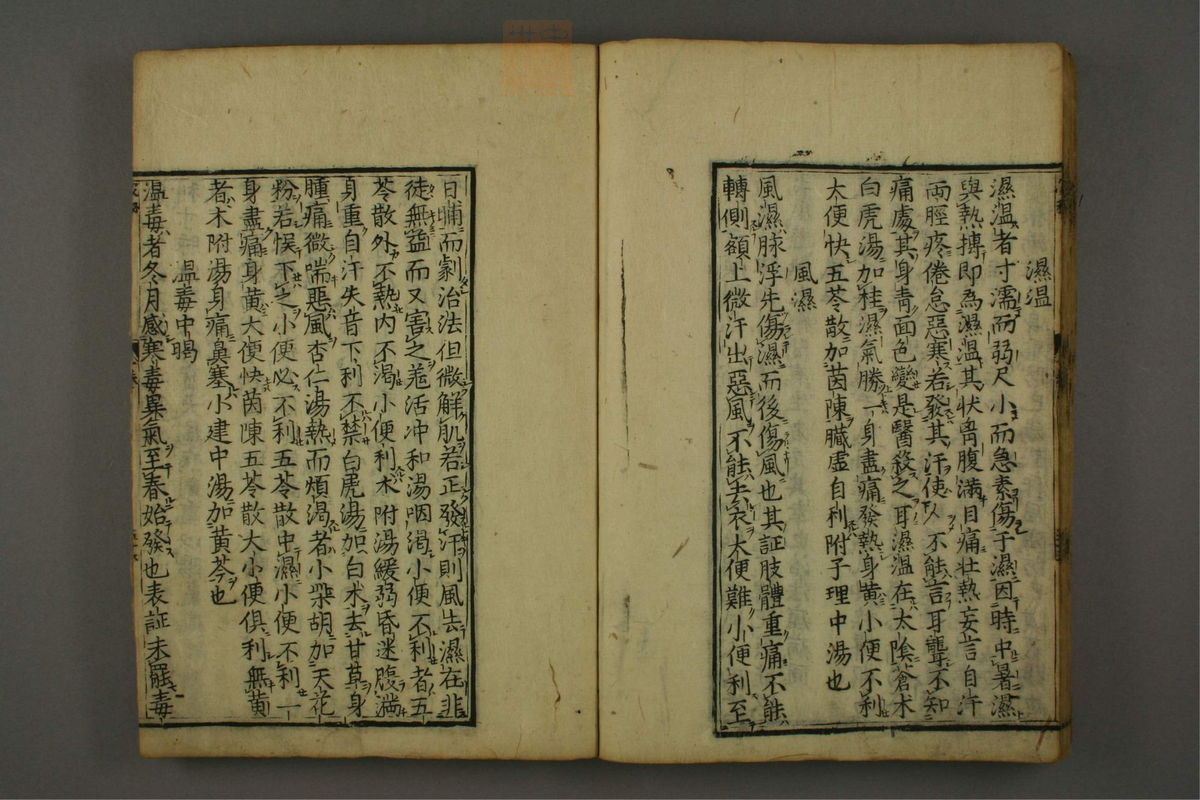 濕温
濕温者寸濡而弱尺小而急素傷于濕因時中暑濕
與熱搏即為濕温其状胷腹満目痛壮熱妄言自汗
両脛疼倦怠惡寒若發其汗使人不能言耳聾不知
痛處其身青面色變是醫殺之耳濕温在太陰蒼术
白虎湯加桂濕氣勝一身盡痛發熱身黄小便不利
大便快五苓散加茵陳臓虚自利附子理中湯也
風濕
風濕脉浮先傷濕而後傷風也其証肢體重痛不能
轉側額上微汗出惡風不能去衣大便難小便利至
日晡而劇治法但微解肌若正發汗則風去濕在非
徒無益而又害之羗活冲和湯咽渇小便不利者五
苓散外不熱内不渇小便利术附湯緩弱昏迷腹満
身重自汗失音下利不禁白虎湯加白术去甘草身
腫痛微喘惡風杏仁湯熱而煩渇者小柴胡加天花
粉若悞下之小便必不利五苓散中濕小便不利一
身盡痛身黄大便快茵陳五苓散大小便俱利無黄
者术附湯身痛鼻塞小建中湯加黄芩也
温毒中暍
温毒者冬月感寒毒異氣至春始發也表証未罷毒